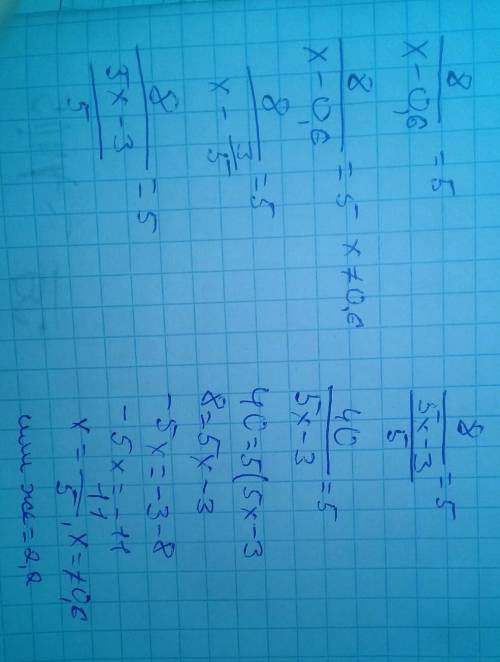 8/(x-0,6) = 5
8/(x-0,6) = 5 x≠0,6
8/(x - 3/5) = 5
8/((5x-3)/5) = 5
8/((5x-3)/5) = 5
40/(5x-3) = 5
40=5(5x-3
8=5x-3
-5x=-3-8
-5x=-11
x=11/5, x=≠0,6
или же=2,2